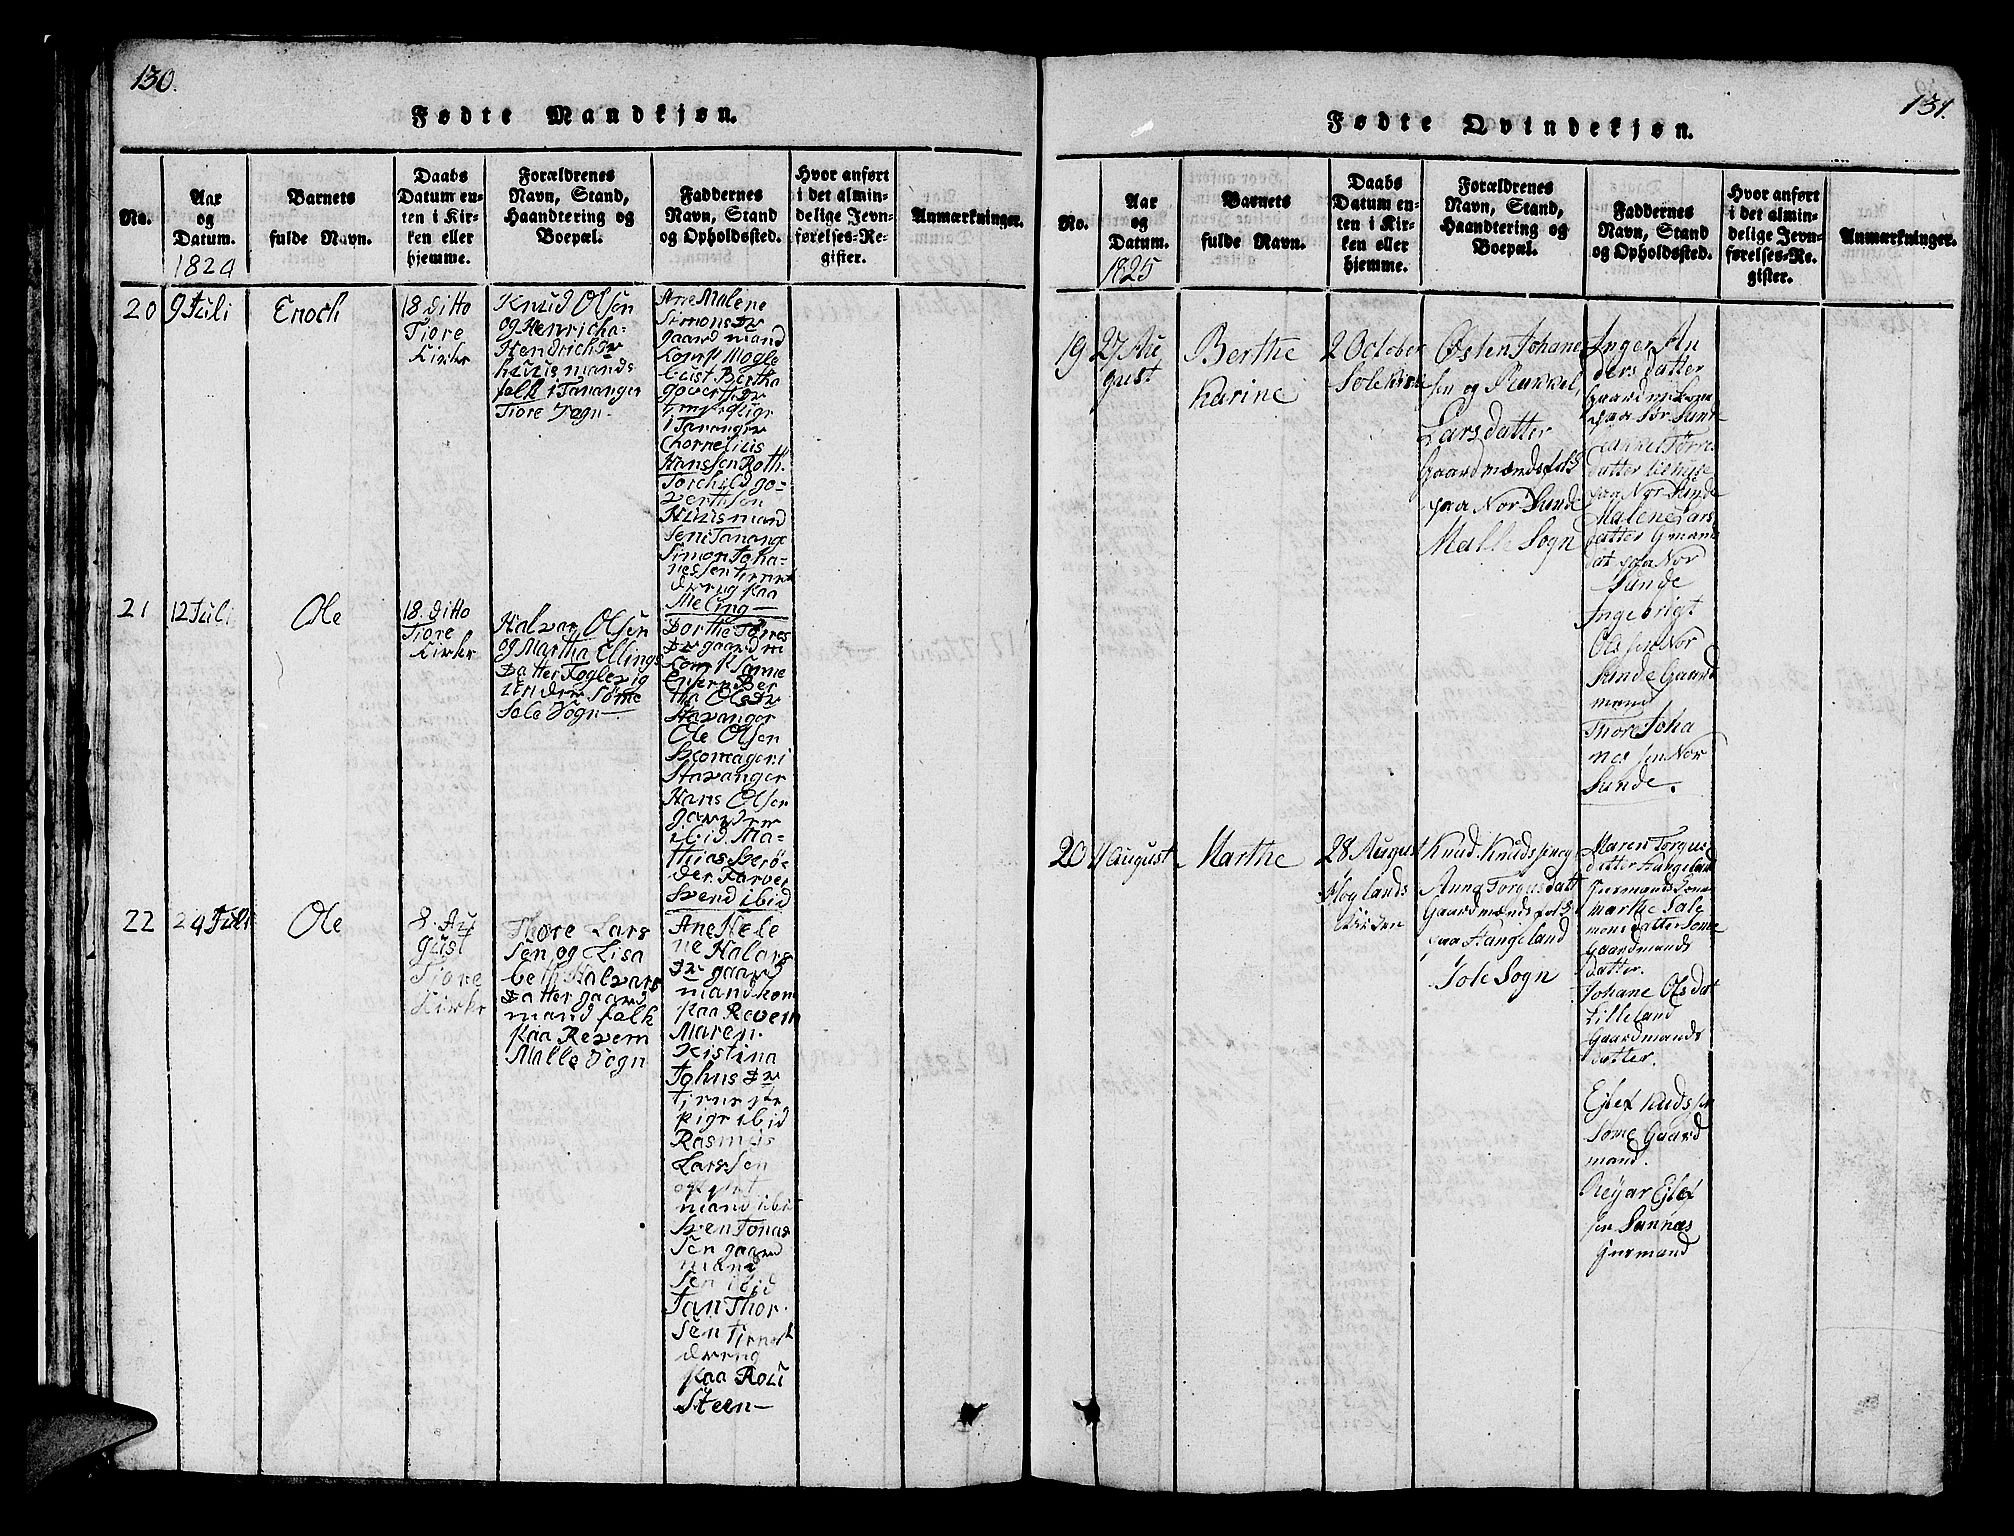 130.
Fødte Mandkjøn.
No.
Aar
og
Datum.
1824
Barnets
fulde Navn.
Daabs
Datum en-
ten i Kir-
ken eller
hjemme.
Forældrenes
Navn, Stand,
Haandtering og
Boepæl.
Faddernes
Navn, Stand
og Opholdssted.
Hvor anført
i det almin-
delige Jevn-
førelses-Re-
gister.
Anmærkninger.
20
9 Juli
Enoch
18 ditto
Tiore
Kirke
Knud Olsen
og Henricha
Hendrichdr
huusmands
folk i Tananger
Tiore Sogn
Ane Malene
Simons Dr
gaard mand
Bertha
i Tananger
Chornelius
Hanssen Roth.
Torchild go-
vertsen
Huusmand
Sen i Tanange
Simon Joha-
nessen
paa
Meling
21
12 Juli
Ole
18. ditto
Tiore
Kirke
Halvar Olsen
og Martha Ellings
Datter Foglevig
under Sømme
Sole Sogn
Dorthe Torres
Dr gaard m
Ber
tha Ols Dr
Stavanger
Ole Olsen
Skomager i
Stavanger
Hans Olsen
ibid. Ma-
thias
Svend ibid
22
24 Juli
Ole
8. Au
gust
Tiore
Kirke
Thore Lars
Sen og Lisa
beth Halvars
Datter gaard
mand folk
paa Revem
Malle Sogn
Ane Hele
ne Halvars
Dr gaard
mand kone
paa Revem
Maren
Kistina
Johns Dr
pige ibid
Rasmus
Larssen
mand ibid
Sven Jonas
Sen gaard
mand
Sen ibid
Jan Thor
Sen
paa Rou
Steen
131.
Fødte Qvindekjøn.
No.
Aar
og
Datum.
1825
Barnets
fulde Navn.
Daabs
Datum en-
ten i Kir-
ken eller
hjemme.
Forældrenes
Navn, Stand,
Haandtering og
Boepæl.
Faddernes
Navn, Stand
og Opholdssted.
Hvor anført
i det almin-
delige Jevn-
førelses-Re-
gister.
Anmærkninger.
19
27 Au
gust
Berthe
Karine
2 October
Sole Kirke
Østen Johane
sen og Rakkel
Larsdatter
Gaardmændsfolk
paa Nor Sunde
Malle Sogn
Inger An
ders datter
paa Sør Sunde
Tørres
datter
paa Nor Sunde
Malene Lars
datter
paa Nor
Sunde
Ingebrigt
Olssen Nor
Sunde Gaard
mand
Thore Joha
nes sen Nor
Sunde.
20
11 August
Marthe
28 August
Høglands
Kirken
Knud Knudssen og
Anna Torgusdatt
Gaardmænds folk
paa Hangeland
Sole Sogn
Maren Torgus
datter Hangeland
marthe Sale
monsdatter Sømme
Gaardmands
datter.
Johane Ols dat
Lilleland
Gaardmands
datter.
Eflef Knudssen
Somme Gaard
mand.
Reijar Eflef
sen Sannæs